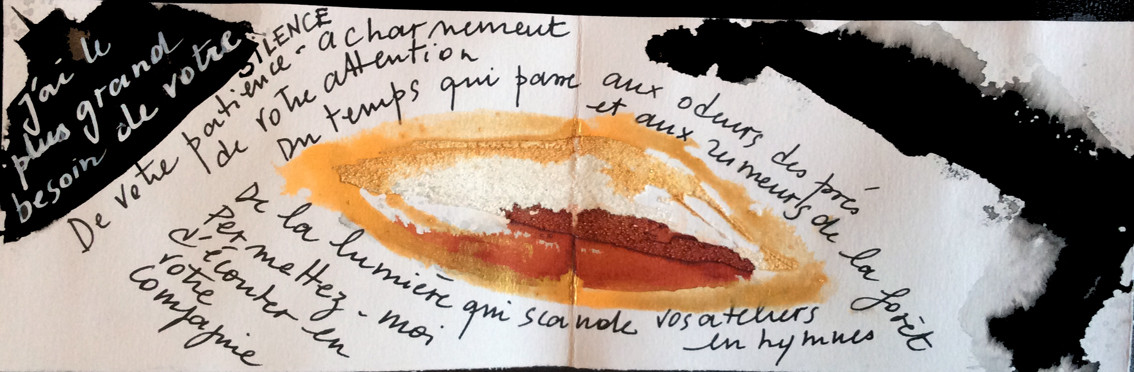 J'ai le
plus grand
besoin de votre
SILENCE
De votre patience - acharnement
de votre attention
Du temps qui passe aux odeurs des prés
et aux rumeurs de la forêt
De la lumière qui scande vos ateliers
en hymnes
Permettez-moi
d'écouter en
votre
compagnie